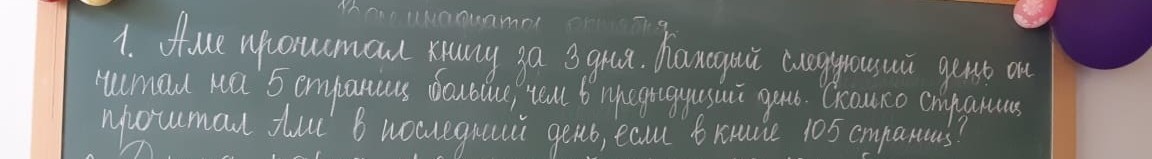 Восемнадцатое октября
1. Али прочитал книгу за 3 дня. Каждый следующий день он
читал на 5 страниц больше, чем в предыдущий день. Сколько страниц
прочитал Али в последний день, если в книге 105 страниц?